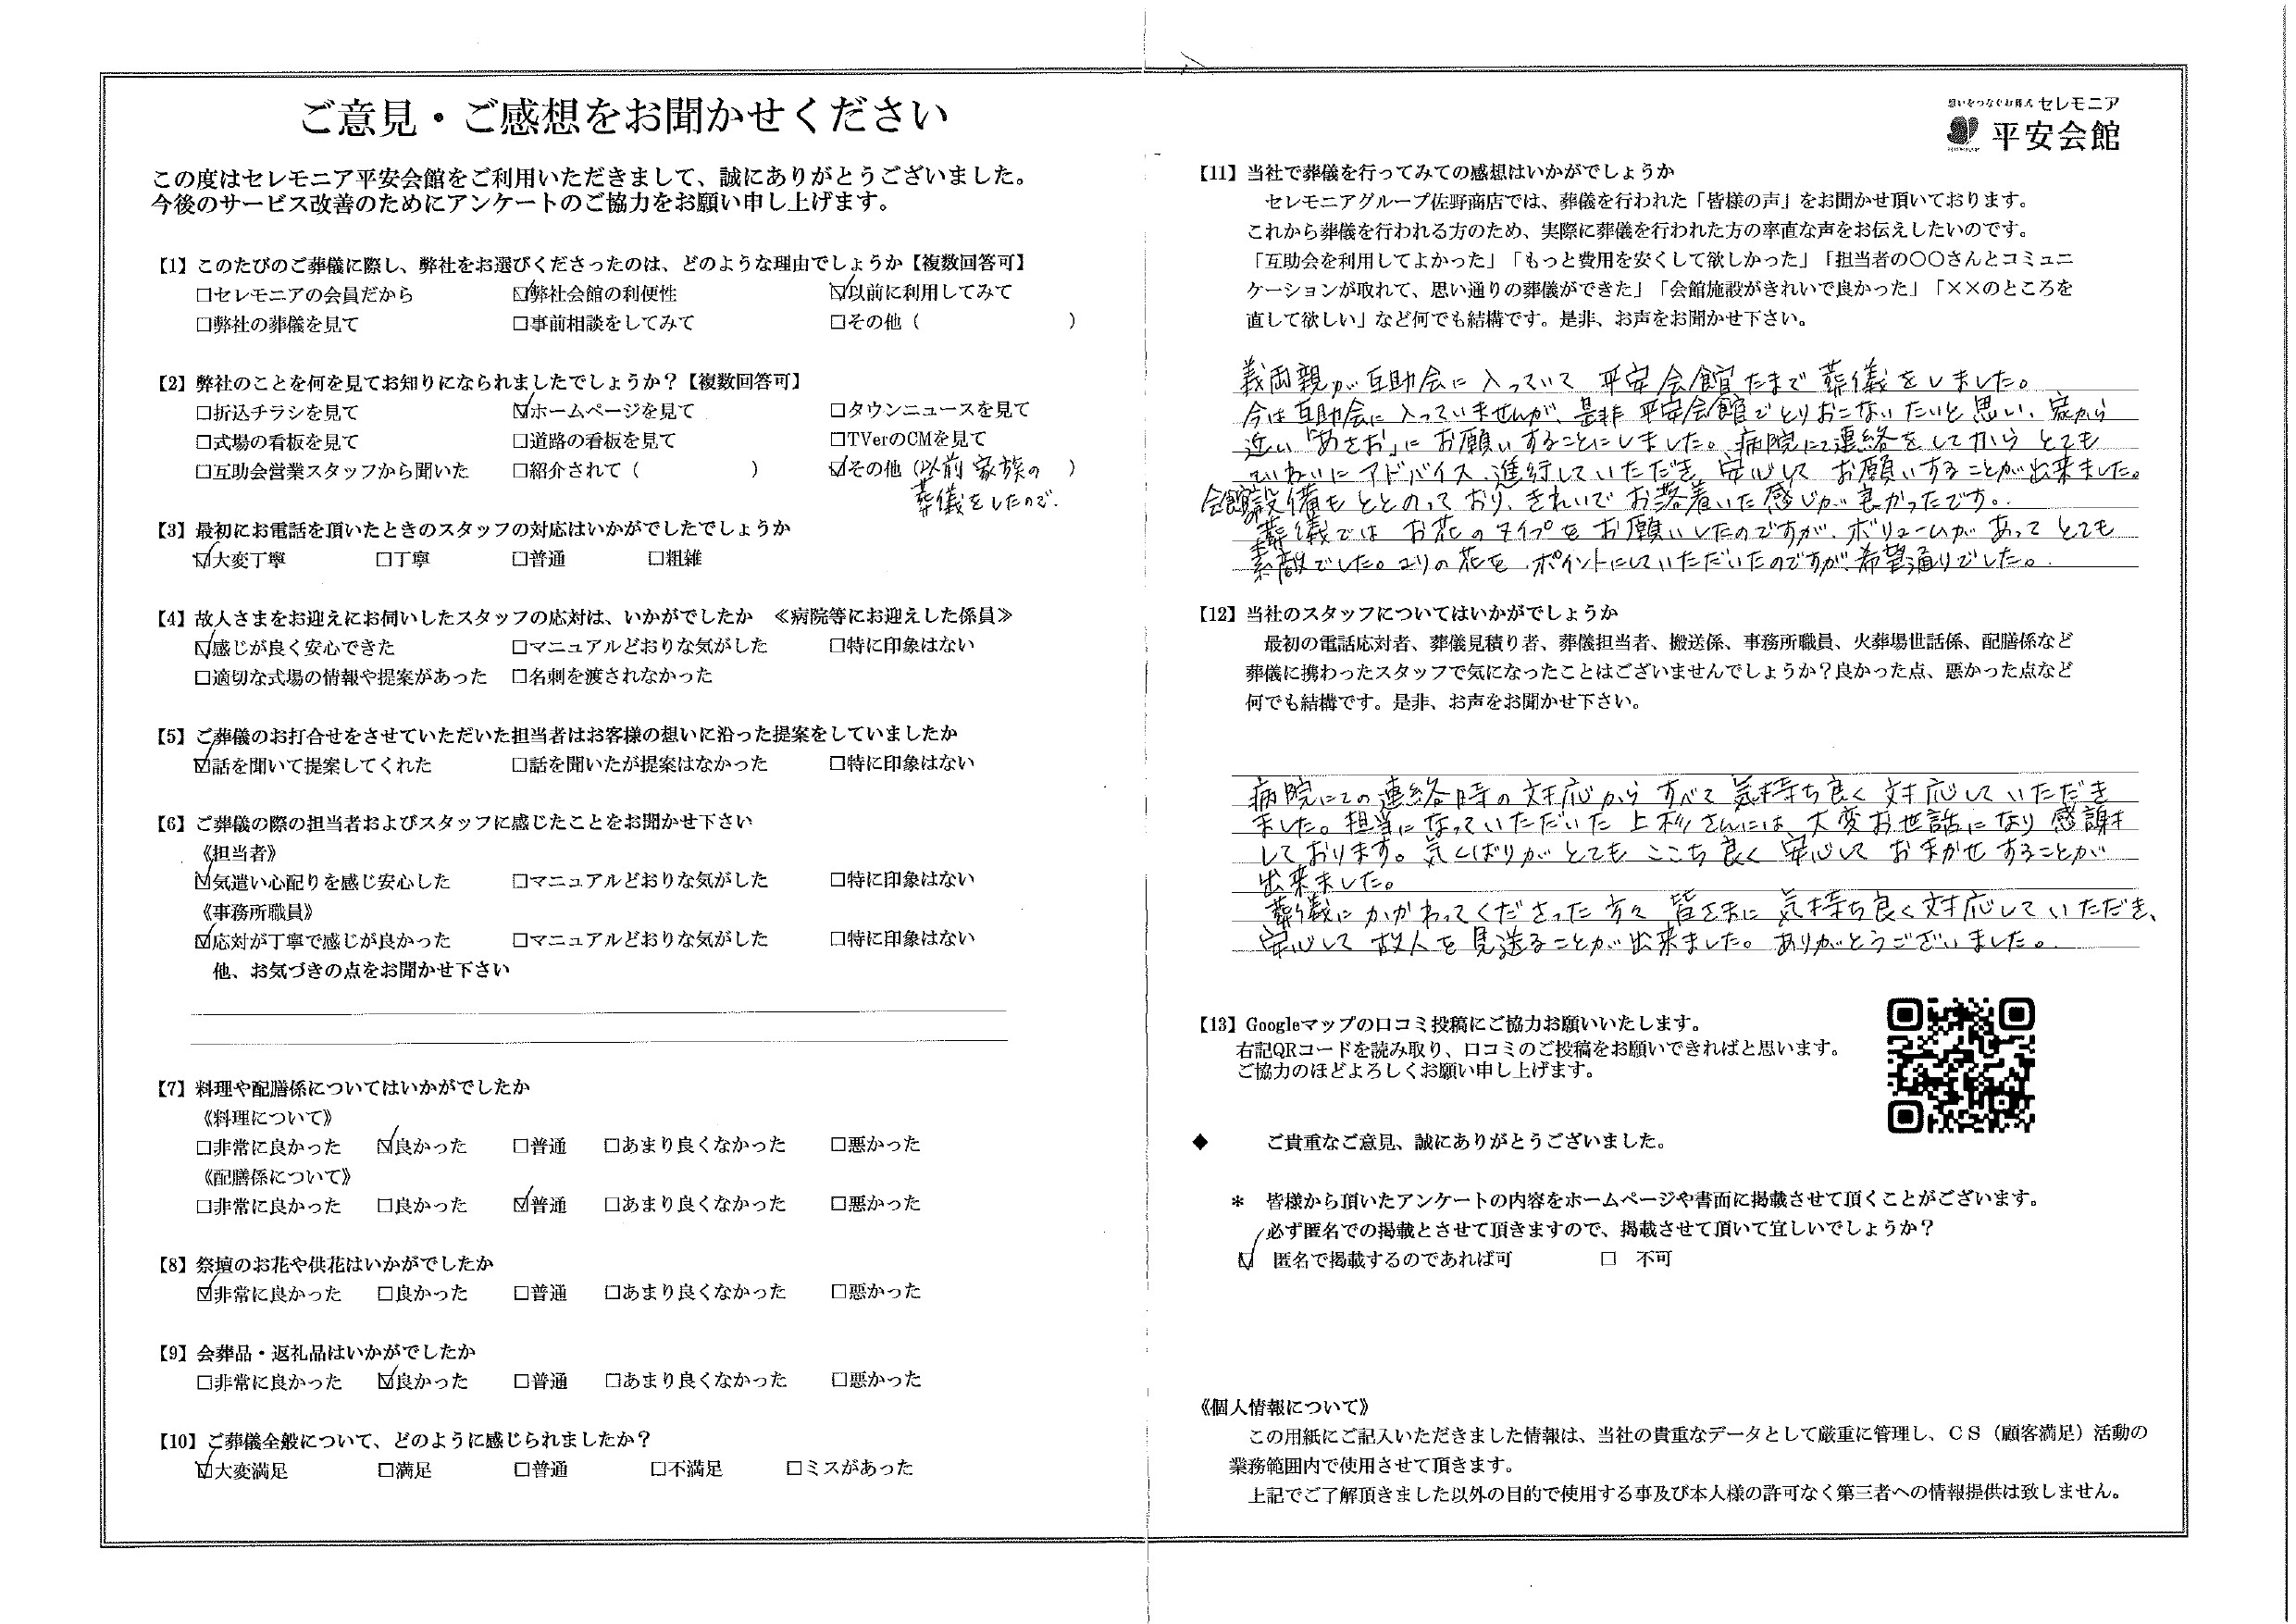 ご意見・ご感想をお聞かせください
この度はセレモニア平安会館をご利用いただきまして、誠にありがとうございました。
今後のサービス改善のためにアンケートのご協力をお願い申し上げます。
【1】このたびのご葬儀に際し、弊社をお選びくださったのは、どのような理由でしょうか【複数回答可】
□セレモニアの会員だから ☑弊社会館の利便性 ☑以前に利用してみて
□弊社の葬儀を見て □事前相談をしてみて □その他（ ）
【2】弊社のことを何を見てお知りになられましたでしょうか？【複数回答可】
□折込チラシを見て ☑ホームページを見て □タウンニュースを見て
□式場の看板を見て □道路の看板を見て □TVerのCMを見て
□互助会営業スタッフから聞いた □紹介されて（ ） ☑その他（以前 家族の ）
葬儀をしたので.
【3】最初にお電話を頂いたときのスタッフの対応はいかがでしたでしょうか
☑大変丁寧 □丁寧 □普通 □粗雑
【4】故人さまをお迎えにお伺いしたスタッフの応対は、いかがでしたか ≪病院等にお迎えした係員≫
☑感じが良く安心できた □マニュアルどおりな気がした □特に印象はない
□適切な式場の情報や提案があった □名刺を渡されなかった
【5】ご葬儀のお打合せをさせていただいた担当者はお客様の想いに沿った提案をしていましたか
☑話を聞いて提案してくれた □話を聞いたが提案はなかった □特に印象はない
【6】ご葬儀の際の担当者およびスタッフに感じたことをお聞かせ下さい
《担当者》
☑気遣い心配りを感じ安心した □マニュアルどおりな気がした □特に印象はない
《事務所職員》
☑応対が丁寧で感じが良かった □マニュアルどおりな気がした □特に印象はない
他、お気づきの点をお聞かせ下さい
【7】料理や配膳係についてはいかがでしたか
《料理について》
□非常に良かった ☑良かった □普通 □あまり良くなかった □悪かった
《配膳係について》
□非常に良かった □良かった ☑普通 □あまり良くなかった □悪かった
【8】祭壇のお花や供花はいかがでしたか
☑非常に良かった □良かった □普通 □あまり良くなかった □悪かった
【9】会葬品・返礼品はいかがでしたか
□非常に良かった ☑良かった □普通 □あまり良くなかった □悪かった
【10】ご葬儀全般について、どのように感じられましたか？
☑大変満足 □満足 □普通 □不満足 □ミスがあった
想いをつなぐお葬式 セレモニア
平安会館
【11】当社で葬儀を行ってみての感想はいかがでしょうか
セレモニアグループ佐野商店では、葬儀を行われた「皆様の声」をお聞かせ頂いております。
これから葬儀を行われる方のため、実際に葬儀を行われた方の率直な声をお伝えしたいのです。
「互助会を利用してよかった」「もっと費用を安くして欲しかった」「担当者の〇〇さんとコミュニ
ケーションが取れて、思い通りの葬儀ができた」「会館施設がきれいで良かった」「××のところを
直して欲しい」など何でも結構です。是非、お声をお聞かせ下さい。
義両親が互助会に入っていて 平安会館たまで葬儀をしました。
今は互助会に入っていませんが、是非 平安会館でとりおこないたいと思い、家から
近い「あさお」にお願いすることにしました。病院にて連絡をしてから とても
ていねいにアドバイス、進行していただき 安心して お願いすることが出来ました。
会館設備もととのっており、きれいで お落着いた感じが 良かったです。
葬儀では お花のタイプをお願いしたのですが、ボリュームがあって とても
素敵でした。ユリの花を ポイントにしていただいたのですが、希望通りでした。
【12】当社のスタッフについてはいかがでしょうか
最初の電話応対者、葬儀見積り者、葬儀担当者、搬送係、事務所職員、火葬場世話係、配膳係など
葬儀に携わったスタッフで気になったことはございませんでしょうか？良かった点、悪かった点など
何でも結構です。是非、お声をお聞かせ下さい。
病院にての連絡時の対応から すべて 気持ち良く 対応していただき
ました。担当になっていただいた 上杉さんには、大変お世話になり 感謝
しております。気くばりが とても ここち良く 安心して おまかせすることが
出来ました。
葬儀に かかわってくださった 方々 皆さまに 気持ち良く対応していただき、
安心して 故人を見送ることが出来ました。ありがとうございました。
【13】Googleマップの口コミ投稿にご協力お願いいたします。
右記QRコードを読み取り、口コミのご投稿をお願いできればと思います。
ご協力のほどよろしくお願い申し上げます。
◆ ご貴重なご意見、誠にありがとうございました。
＊ 皆様から頂いたアンケートの内容をホームページや書面に掲載させて頂くことがございます。
必ず匿名での掲載とさせて頂きますので、掲載させて頂いて宜しいでしょうか？
☑ 匿名で掲載するのであれば可 □ 不可
《個人情報について》
この用紙にご記入いただきました情報は、当社の貴重なデータとして厳重に管理し、ＣＳ（顧客満足）活動の
業務範囲内で使用させて頂きます。
上記でご了解頂きました以外の目的で使用する事及び本人様の許可なく第三者への情報提供は致しません。